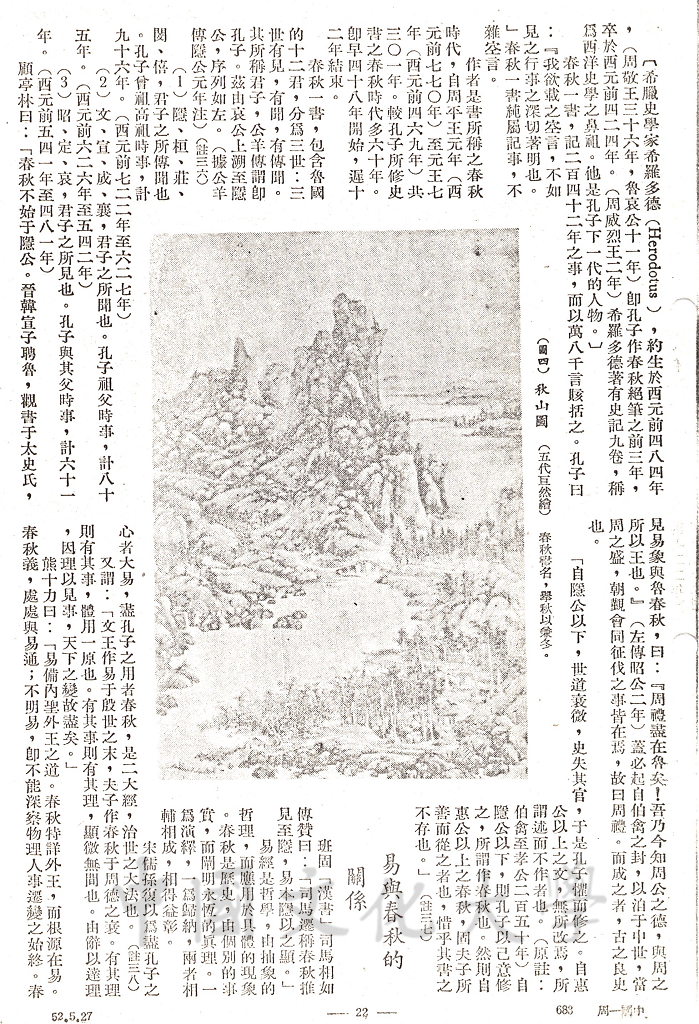 〔希臘史學家希羅多德(Herodotus),約生於西元前四八四年
,(周敬王三十六年,魯哀公十一年)卽孔子作春秋絕筆之前三年,
卒於西元前四二四年。(周威烈王二年)希羅多德著有史記九卷,稱
爲西洋史學之鼻祖。他是孔子下一代的人物。〕
春秋一書,記二百四十二年之事,而以萬八千言賅括之。孔子曰
:『我欲載之空言,不如
見之行事之深切著明也。
」春秋一書純屬記事,不
雜空言。
作者是書所稱之春秋
時代,自周平王元年(西
元前七七〇年)至元王七
年(西元前四六九年)共
三〇一年。較孔子所修史
書之春秋時代多六十年。
卽早四十八年開始,遲十
二年結束。
春秋一書,包含魯國
的十二君,分爲三世:三
世有見,有聞,有傳聞。
其所稱君子,公羊傳謂卽
孔子。茲由哀公上溯至隱
公,序列如左。(據公羊
傳隱公元年注)(註三六)
(1)隱、桓、莊、
閔、僖,君子之所傳聞也
。孔子曾祖高祖時事,計
九十六年。(西元前七二二年至六二七年)
(2)文、宣、成、襄,君子之所聞也。孔子祖父時事,計八十
五年。(西元前六二六年至五四二年)
(3)昭、定、哀,君子之所見也。孔子與其父時事,計六十一
年。(西元前五四一年至四八一年)
顧亭林曰:「春秋不始于隱公。晉韓宣子聘魯,觀書于太史氏,
(圖四)秋山圖 (五代巨然繪) 春秋書名,舉秋以概冬。
見易象與魯春秋,曰:『周禮盡在魯矣!吾乃今知周公之德,與周之
所以王也。』(左傳昭公二年)蓋必起自伯禽之封,以洎于中世,當
周之盛,朝覲會同征伐之事皆在焉,故曰周禮。而成之者,古之良史
也。
「自隱公以下,世道衰微,史失其官,于是孔子懼而修之。自惠
公以上之文無所改焉,所
謂述而不作者也。(原註:
伯禽至孝公二百五十年)自
隱公以下,則孔子以己意修
之,所謂作春秋也。然則自
惠公以上之春秋,固夫子所
善而從之者也,惜乎其書之
不存也。」(註三七)
易與春秋的
關係
班固「漢書」司馬相如
傳贊曰:「司馬遷稱春秋推
見至隱,易本隱以之顯。」
易經是哲學,由抽象的
哲理,而應用於具體的現象
。春秋是歷史,由個別的事
實,而闡明永恆的眞理。一
爲演繹,一爲歸納,兩者相
輔相成,相得益彰。
宋儒孫復以爲盡孔子之
心者大易,盡孔子之用者春秋,是二大經,治世之大法也。(註三八)
又謂:「文王作易于殷世之末,夫子作春秋于周德之衰。有其理
則有其事,體用一原也。有其事則有其理,顯微無間也。由辭以達理
,因理以見事,天下之變故盡矣。」
熊十力曰:「易備內聖外王之道。春秋特詳外王,而根源在易。
春秋義,處處與易通;不明易,卽不能深察物理人事遷變之始終。春
52.5.27
— 22 —
683 周一國中